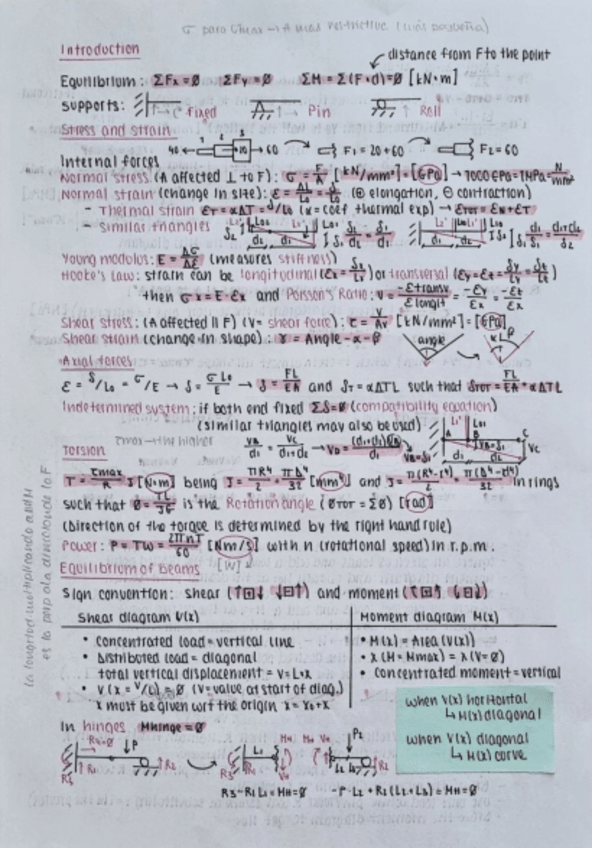 σ para Cmax → A más restrictiva (más pequeña)
Introduction
distance from F to the point
Equilibrium: ΣFx=0 ΣFy=0 ΣM=Σ(F·d)=0 [kN·m]
Supports: Fixed Pin Roll
Stress and strain
Internal forces 40← →60 F1=20+60 F2=60
Normal stress (A affected ⊥ to F): σ=F/A [kN/mm²]=[GPa] → 1000 GPa=1MPa=N/mm²
Normal strain (change in size): ε=ΔL/L0=δ/L0 (⊕ elongation, ⊖ contraction)
- Thermal strain ετ=αΔT=δ/L0 (α=coef thermal exp) → εTOT=εN+εT
- Similar triangles
Young modulus: E=Δσ/Δε (measures stiffness)
Hooke's Law: strain can be longitudinal (εx=δx/Lx) or transversal (εy=εz=δy/Ly=δz/Lz)
then σx=E·εx and Poisson's Ratio: ν=-εtransv/εlongit=-εy/εx=-εz/εx
Shear stress: (A affected || F) (V= shear force): τ=V/Av [kN/mm²]=[GPa]
Shear strain (change in shape): γ = Angle-α-β angle
Axial forces
ε=δ/L0=σ/E → δ=σL0/E → δ=FL/EA and δT=αΔTL such that δTOT=FL/EA+αΔTL
Indetermined system: if both end fixed ΣδS=0 (compatibility equation)
(similar triangles may also be used)
Torsion τmax→the higher
T=τmax/R J [N·m] being J=πR⁴/2=πD⁴/32 [mm⁴] and J=π(R⁴-r⁴)/2=π(D⁴-d⁴)/32 in rings
such that Ø=TL/JG is the Rotation angle (ØTOT=ΣØ) [rad]
(Direction of the torque is determined by the right hand rule)
Power: P=TW=2πnT/60 [Nm/s] with n (rotational speed) in r.p.m.
[W]
Equilibrium of Beams
Sign convention: shear and moment
Shear diagram V(x) Moment diagram M(x)
• Concentrated load=vertical line • M(x)=Area(V(x))
• Distributed load=diagonal • x(M=Mmax)=x(V=0)
total vertical displacement=V=L·x • Concentrated moment=vertical
• V(x=V/L)=0 (V=value at start of diag.)
x must be given wrt the origin x=x0+x
when V(x) horizontal
↳ M(x) diagonal
when V(x) diagonal
↳ M(x) curve
In hinges Mhinge=0
R3-R1L1=MH=0 -P·L2+R2(L2+L3)=MH=0